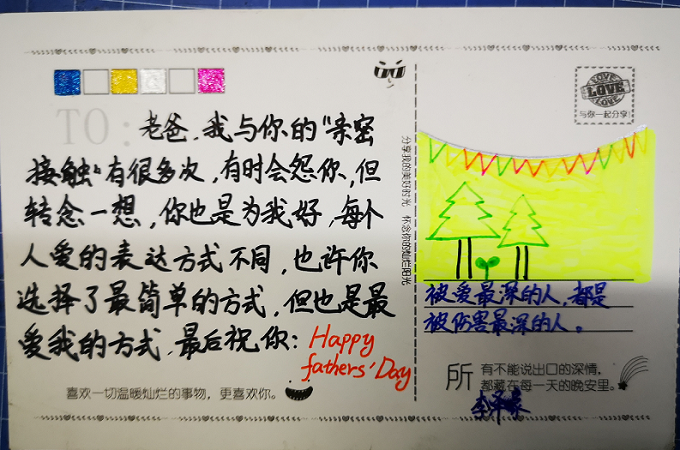 TO:
老爸,我与你的"亲密
接触"有很多次,有时会怨你,但
转念一想,你也是为我好,每个
人爱的表达方式不同,也许你
选择了最简单的方式,但也是最
爱我的方式,最后祝你:
Happy
fathers' Day
喜欢一切温暖灿烂的事物,更喜欢你。
分享我的美好时光 怀念你的灿烂阳光
LOVE
LOVE
LOVE
与你一起分享!
被爱最深的人,都是
被伤害最深的人。
所有不能说出口的深情,
都藏在每一天的晚安里。